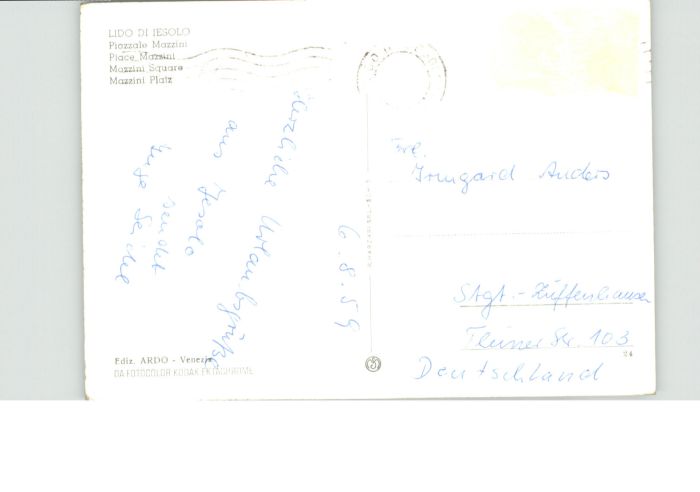 LIDO DI JESOLO
Piazzale Mazzini
Place Mazzini
Mazzini Square
Mazzini Platz
6.8.59
Herzliche Urlaubsgrüße
aus Jesolo
sendet
Frl.
Irmgard Anders
Stgt.-Zuffenhausen
Str. 103
Deutschland
24
Ediz. ARDO - Venezia
DA FOTOCOLOR KODAK EKTACHROME